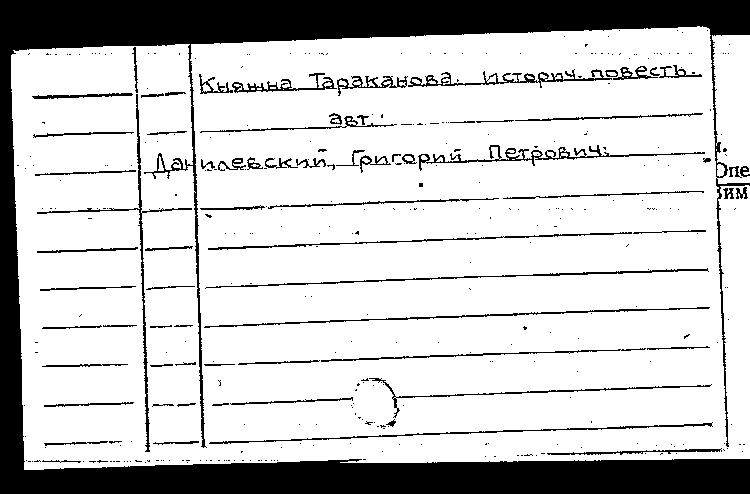 Княжна Тараканова. Историч. повесть.
авт.:
Данилевский, Григорий Петрович.